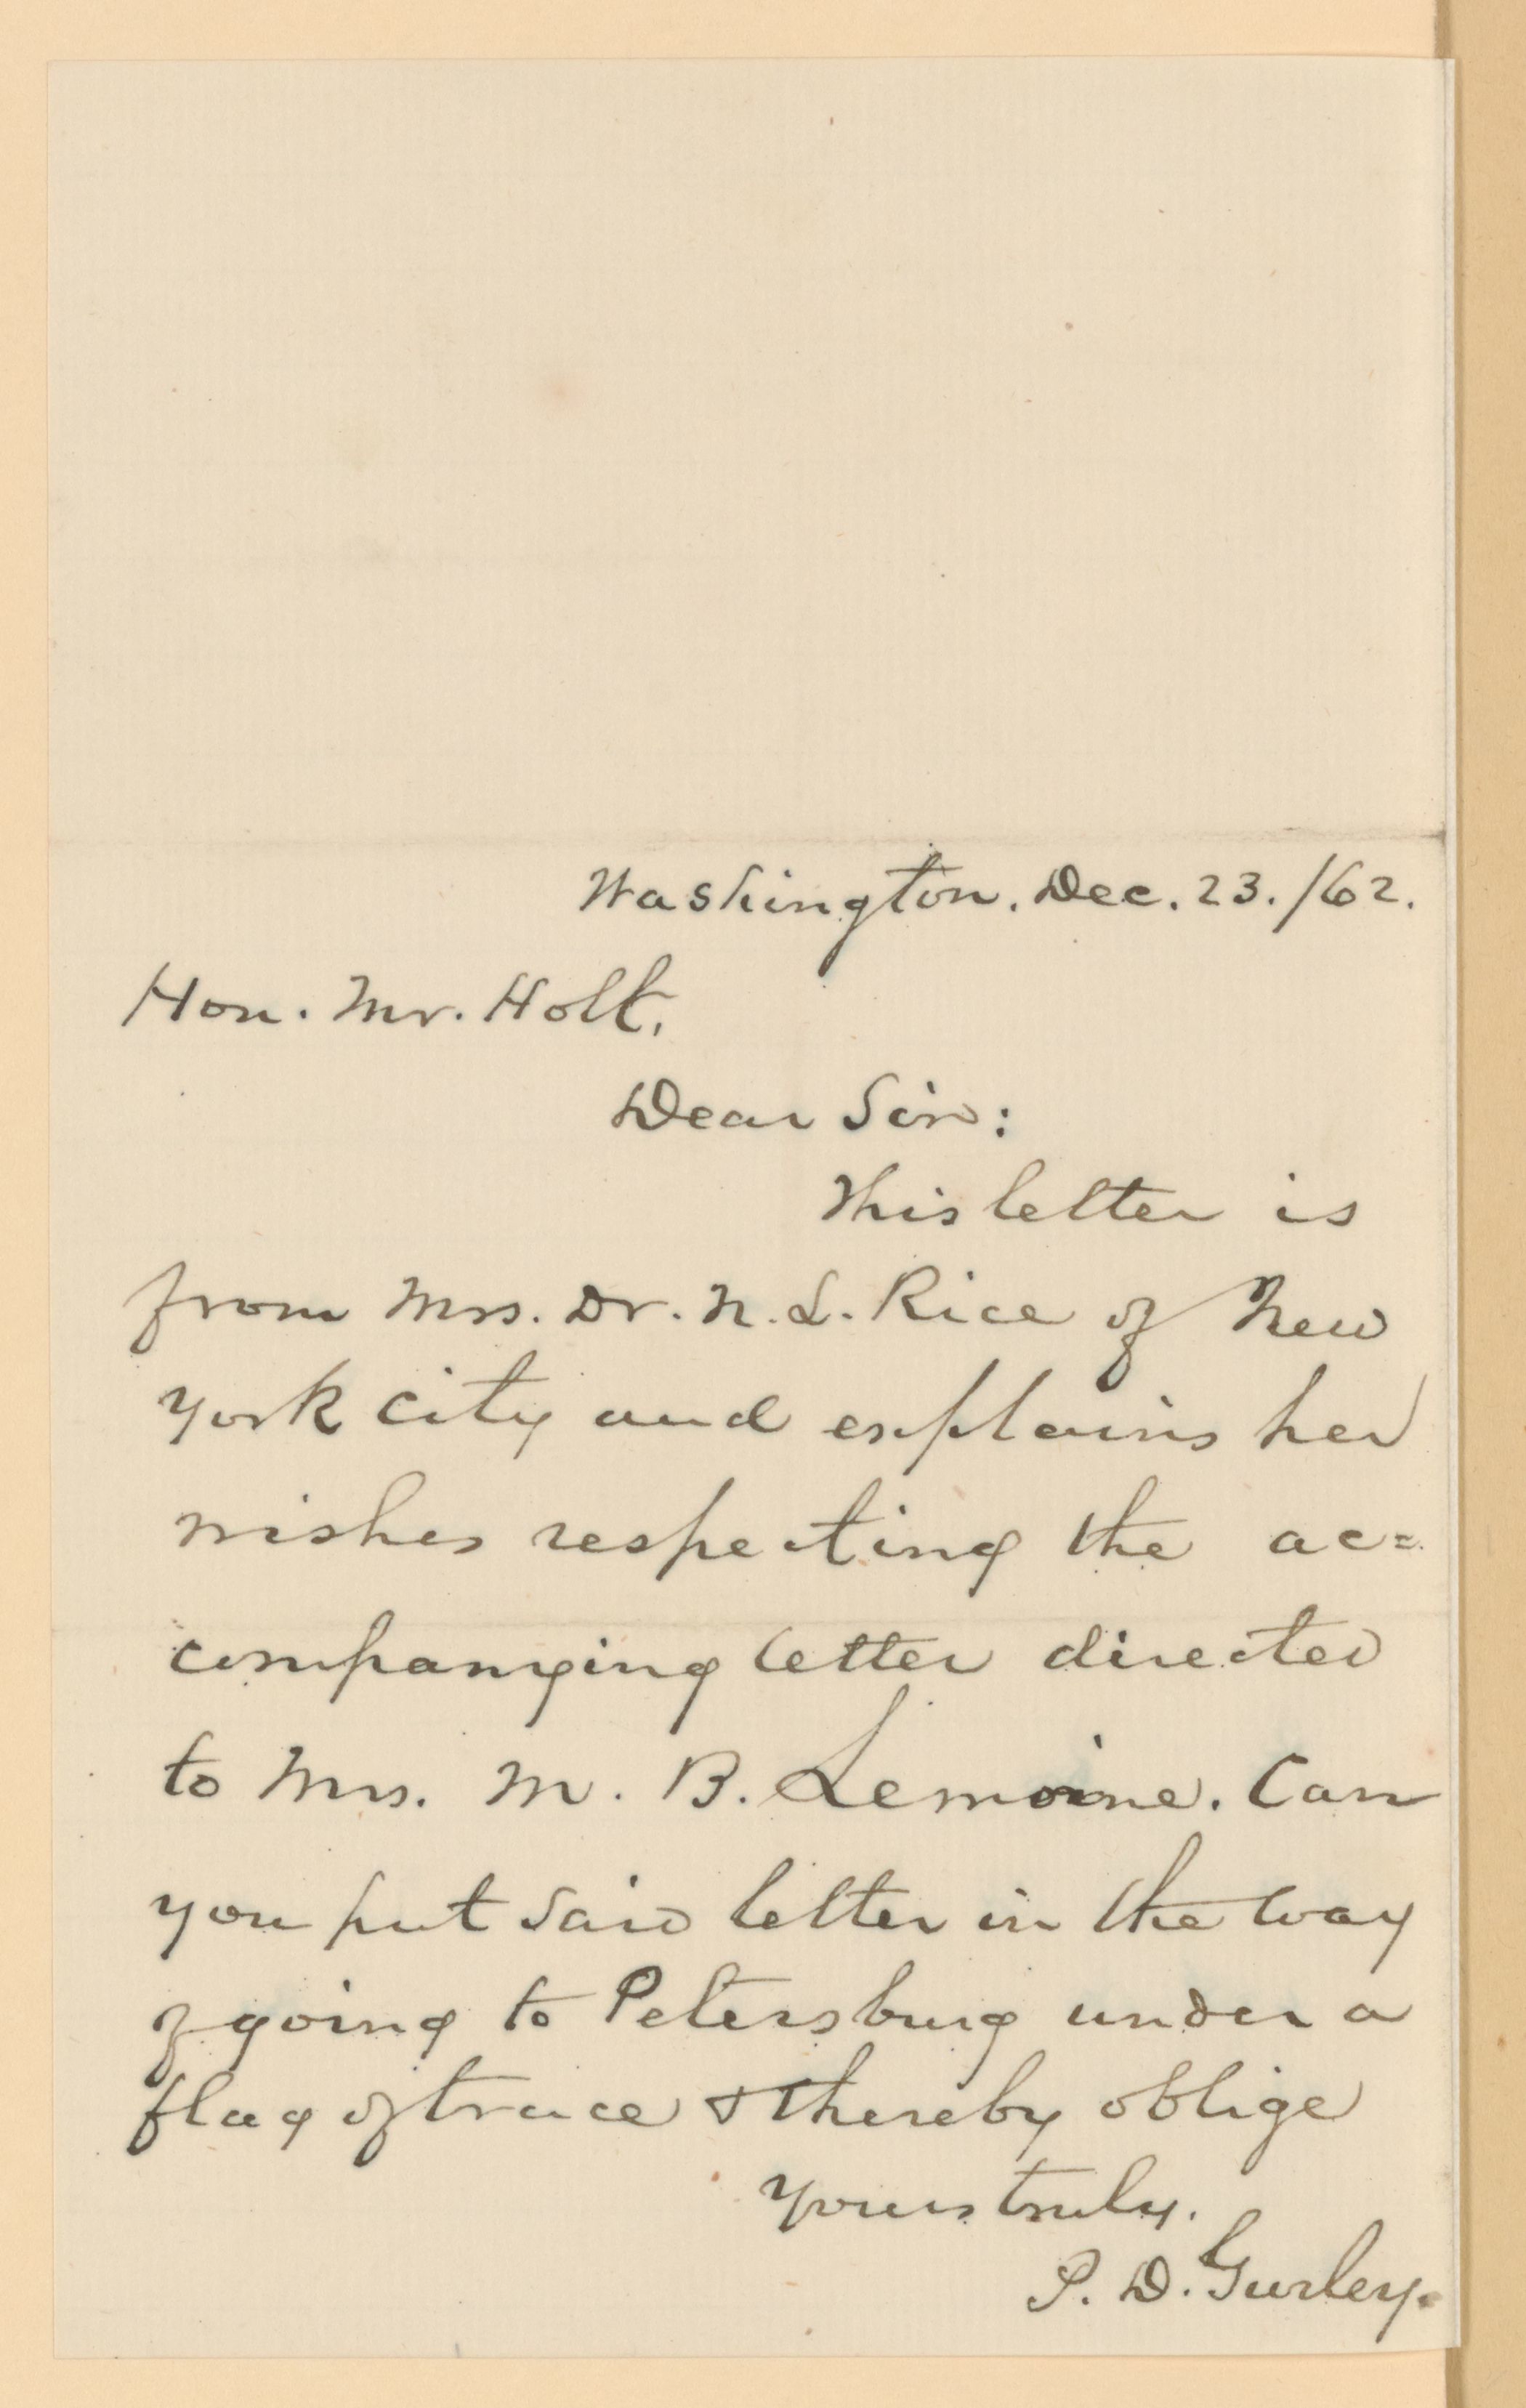 Washington. Dec. 23. /62.
Hon. Mr. Holt,
Dear Sir:
This letter is
from Mrs. Dr. N. L. Rice of New
York City and explains her
wishes respecting the ac=
companying letter directed
to Mrs. M. B. Lemoine. Can
you put said letter in the way
of going to Petersburg under a
flag of truce & thereby oblige
Yours truly.
P. D. Gurley.